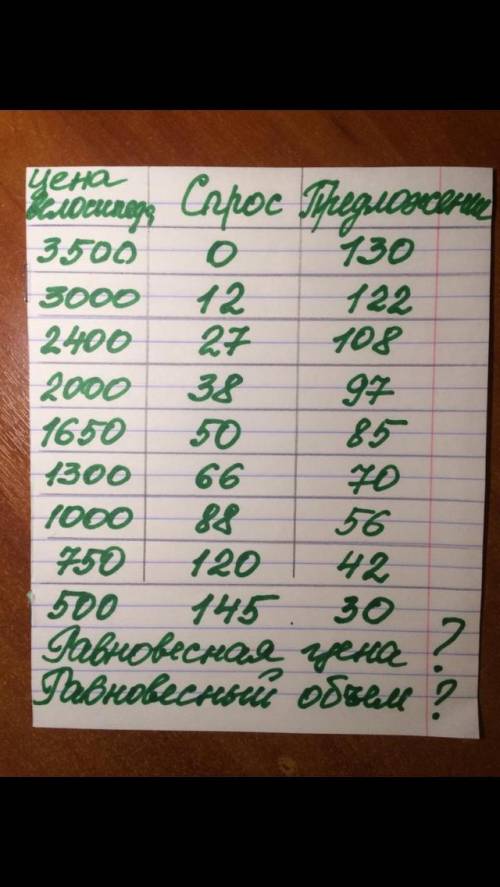 цена
велосипеда Спрос Предложение
3500 0 130
3000 12 122
2400 27 108
2000 38 97
1650 50 85
1300 66 70
1000 88 56
750 120 42
500 145 30
Равновесная цена ?
Равновесный объем ?